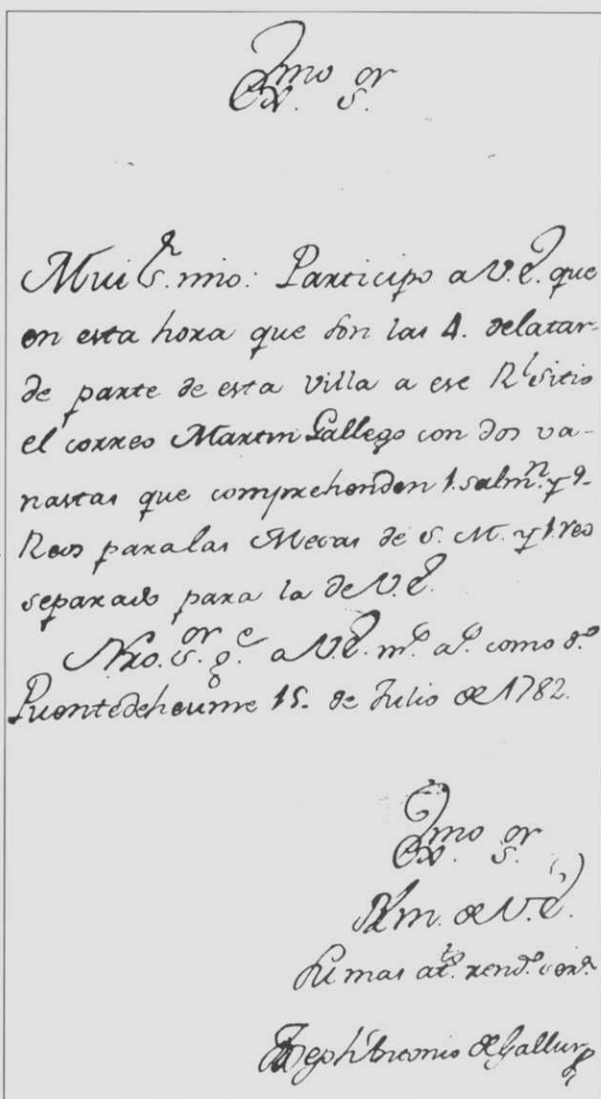 Exmo. Sor.
Mui Sr. mio: Participo a V.E. que
en esta hora que son las 4. delatar-
de parte de esta Villa a ese Rl. Sitio
el correo Martin Gallego con dos va-
nastas que comprehenden 1. salmn. y 9.
Reos paralas Mesas de S. M. y 1. reo
separado para la de V.E.
Nro. Sor. ge. a V.E. ms. as. como do.
Puentedeheume 15. de Julio de 1782.
Exmo. Sor.
BLm. de V.E.
su mas ato. rendo. serr.
Joseph Antonio de Gallur